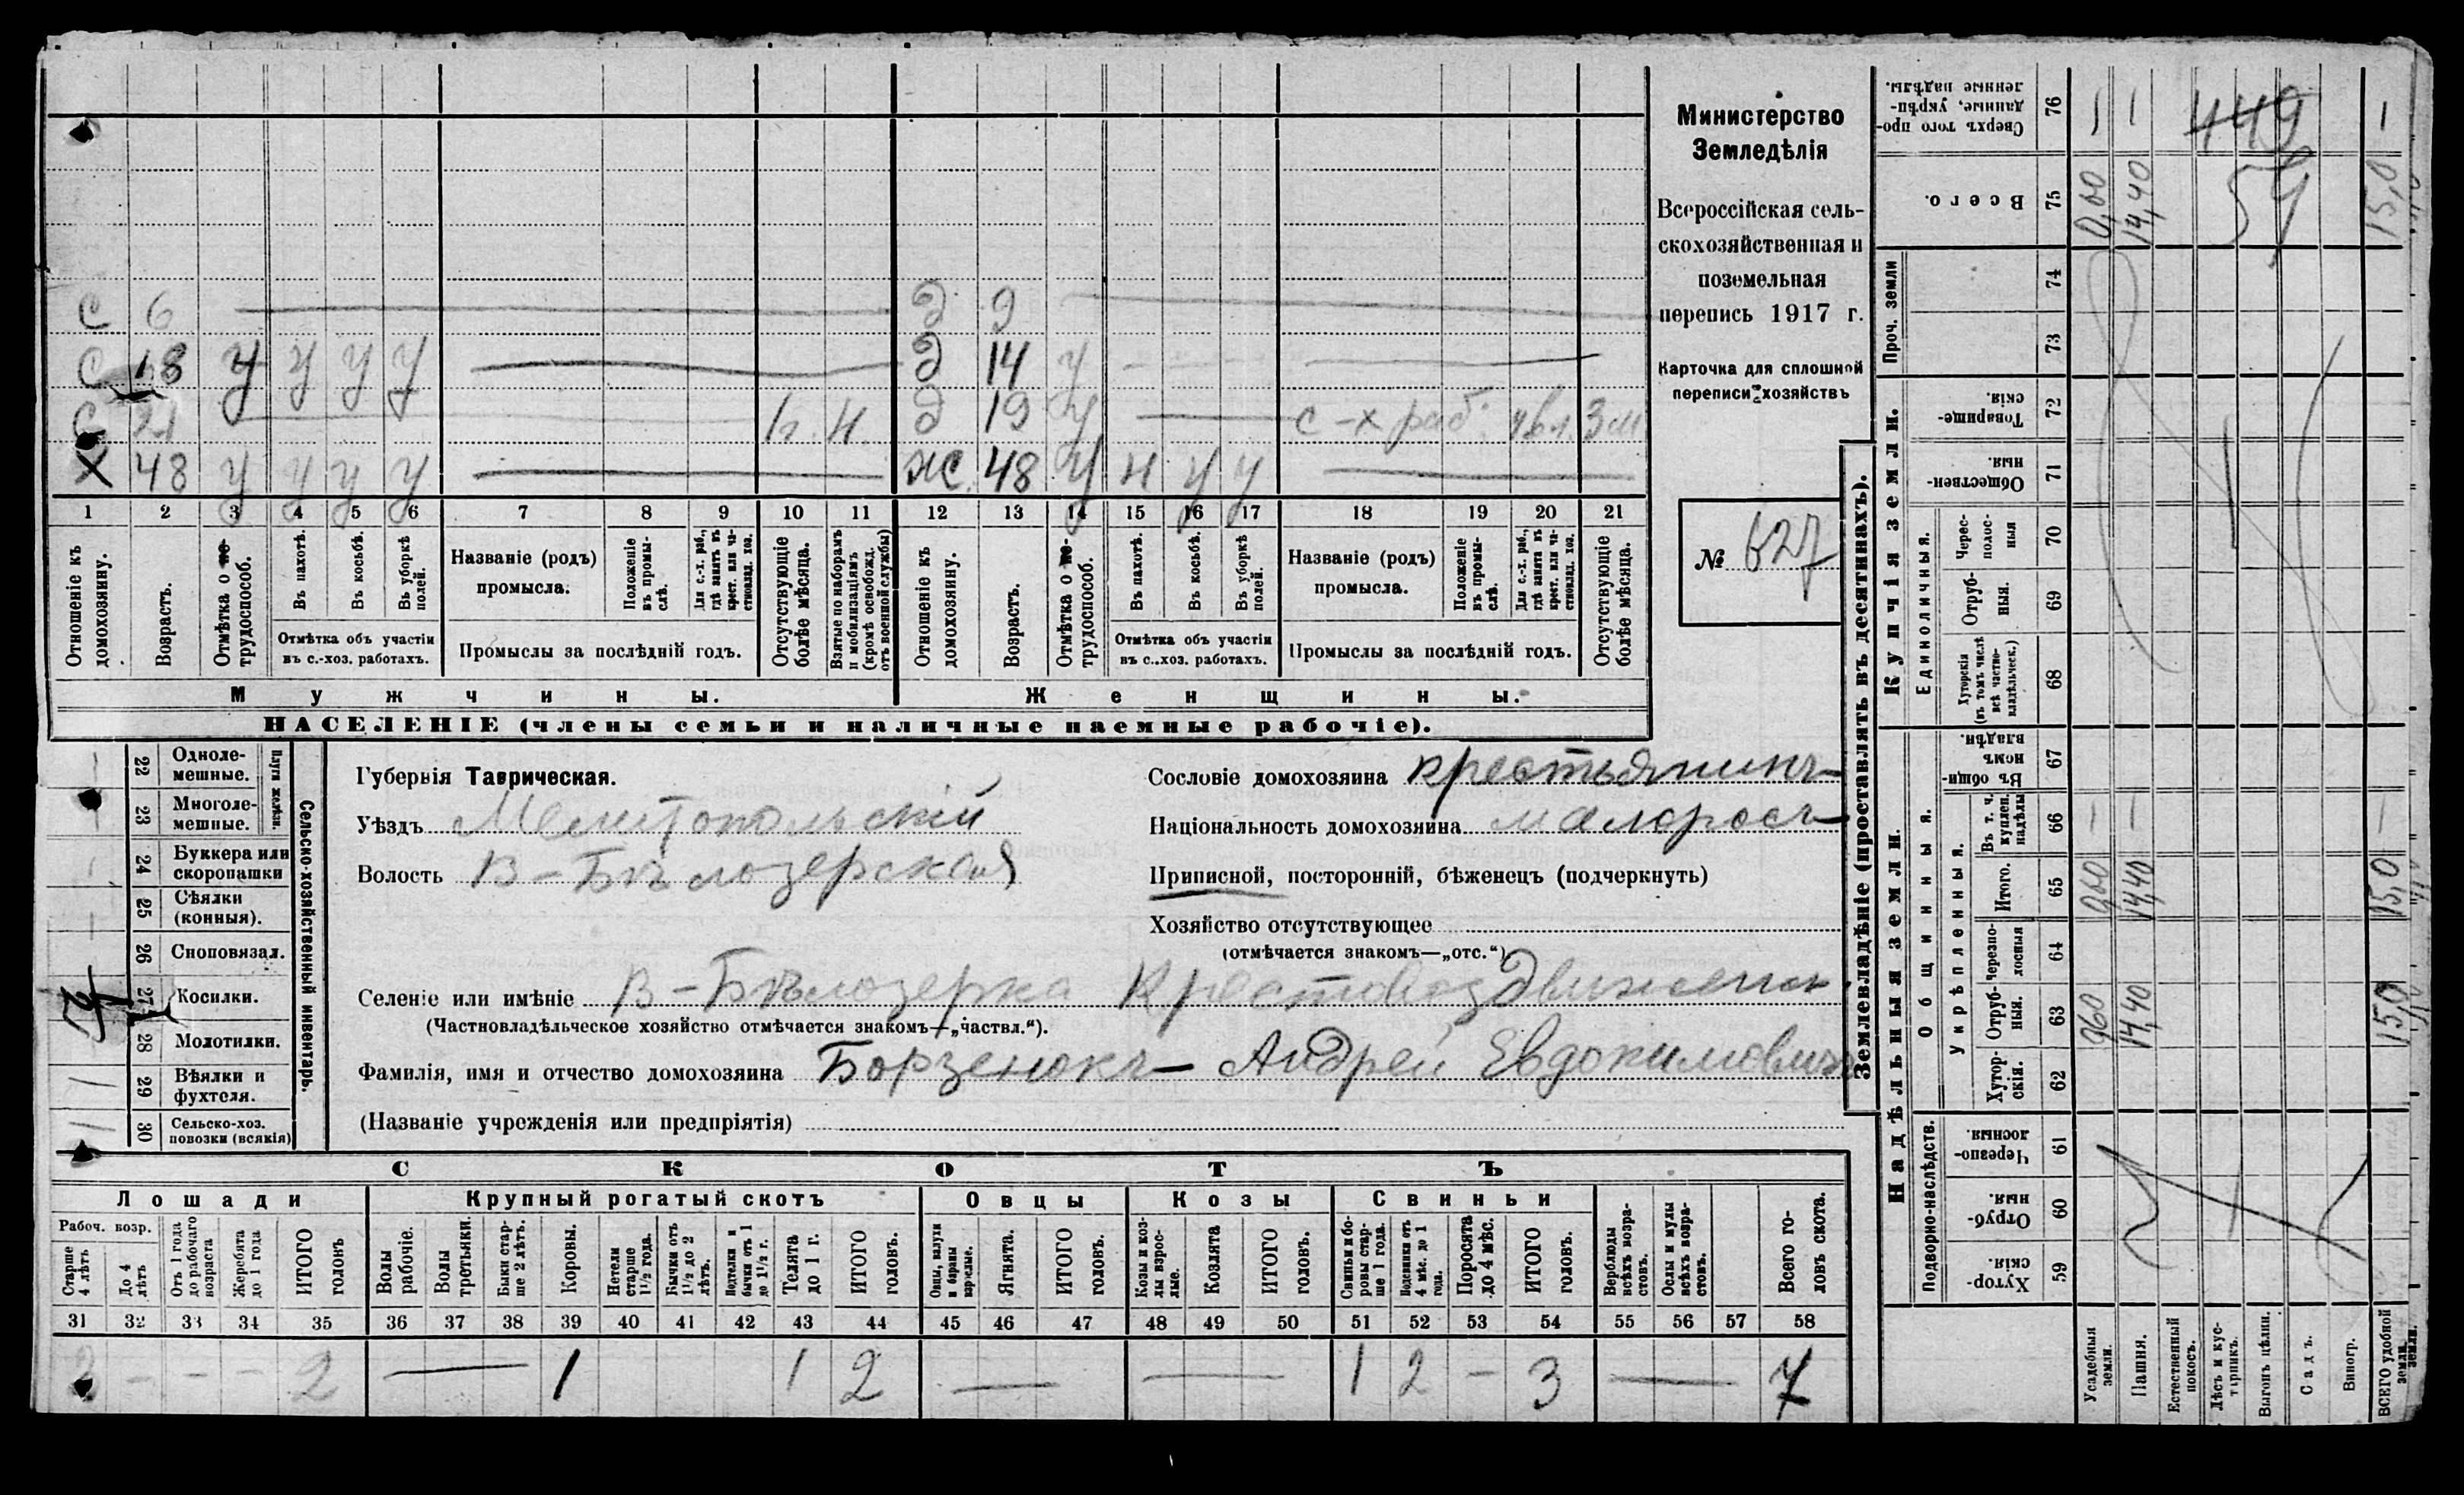 С 6 — Д 9 —
С 18 У У У У — Д 14 У — — —
С 21 — Н. Н. Д 19 У — с-х раб. 3 м
Х 48 У У У У — Ж. 48 У Н У У —
1 2 3 4 5 6 7 8 9 10 11 12 13 14 15 16 17 18 19 20 21
Отношеніе къ домохозяину.
Возрастъ.
Отмѣтка о не-трудоспособ.
Въ пахотѣ.
Въ косьбѣ.
Въ уборкѣ полей.
Отмѣтка объ участіи въ с.-хоз. работахъ.
Названіе (родъ) промысла.
Положеніе въ промыслѣ.
Для с.-х. раб., гдѣ занятъ въ крест. или частновлад. хоз.
Промыслы за послѣдній годъ.
Отсутствующіе болѣе мѣсяца.
Взятые по наборамъ и мобилизаціямъ (кромѣ освобожд. отъ военной службы)
Отношеніе къ домохозяину.
Возрастъ.
Отмѣтка о не-трудоспособ.
Въ пахотѣ.
Въ косьбѣ.
Въ уборкѣ полей.
Отмѣтка объ участіи въ с.-хоз. работахъ.
Названіе (родъ) промысла.
Положеніе въ промыслѣ.
Для с.-х. раб., гдѣ занятъ въ крест. или частновлад. хоз.
Промыслы за послѣдній годъ.
Отсутствующіе болѣе мѣсяца.
Мужчины. Женщины.
НАСЕЛЕНІЕ (члены семьи и наличные наемные рабочіе).
Министерство
Земледѣлія
Всероссійская сель-
скохозяйственная и
поземельная
перепись 1917 г.
Карточка для сплошной
переписи хозяйствъ
№ 627
22 Одноле-мешные.
23 Многоле-мешные.
Плуги желѣзн.
24 Буккера или скоропашки
25 Сѣялки (конныя).
26 Сноповязал.
27 Косилки.
28 Молотилки.
29 Вѣялки и фухтеля.
30 Сельско-хоз. повозки (всякія)
Сельско-хозяйственный инвентарь.
Губернія Таврическая.
Уѣздъ Мелитопольскій
Волость В-Бѣлозерская
Сословіе домохозяина крестьянинъ
Національность домохозяина малоросъ
Приписной, посторонній, бѣженецъ (подчеркнуть)
Хозяйство отсутствующее
(отмѣчается знакомъ—„отс.“)
Селеніе или имѣніе В-Бѣлозерка Крестовоздвиженск
(Частновладѣльческое хозяйство отмѣчается знакомъ—„частвл.“).
Фамилія, имя и отчество домохозяина Борзенокъ Андрей Евдокимовичъ
(Названіе учрежденія или предпріятія)
СКОТЪ
Лошади Крупный рогатый скотъ Овцы Козы Свиньи
Рабоч. возр.
Старше 4 лѣтъ
До 4 лѣтъ
Отъ 1 года до рабочаго возраста
Жеребята до 1 года
ИТОГО головъ
Волы рабочіе.
Волы третьяки.
Быки старше 2 лѣтъ.
Коровы.
Нетели старше 1½ года.
Бычки отъ 1½ до 2 лѣтъ.
Подтелки и бычки отъ 1 до 1½ г.
Телята до 1 г.
ИТОГО головъ.
Овцы, валухи и бараны взрослые.
Ягнята.
ИТОГО головъ.
Козы и козлы взрослые.
Козлята
ИТОГО головъ.
Свиньи и боровы старше 1 года.
Подсвинки отъ 4 мѣс. до 1 года.
Поросята до 4 мѣс.
ИТОГО головъ.
Верблюды всѣхъ возрастовъ.
Ослы и мулы всѣхъ возрастовъ.
Всего головъ скота.
31 32 33 34 35 36 37 38 39 40 41 42 43 44 45 46 47 48 49 50 51 52 53 54 55 56 57 58
2 — — — 2 — 1 1 2 — — 1 2 — 3 — 7
Землевладѣніе (проставлять въ десятинахъ).
Купчія земли.
Надѣльныя земли.
Проч. земли
Единоличныя.
Общинныя.
Укрѣпленныя.
Подворно-наслѣдств.
Сверхъ того проданные, укрѣпленные надѣлы. 76 449
Всего. 75 0,60 14,40 59 15,0
74
73
Товарищескія. 72
Общественныя. 71
Чересполосныя 70
Отрубныя. 69
Хуторскія (въ томъ числѣ всѣ частновладѣльческ.) 68
Въ общинномъ владѣн. 67
Въ т. ч. куплен. надѣлы 66
Итого. 65 0,60 14,40 15,0
Черезполосныя 64
Отрубныя. 63 0,60 14,40 15,0
Хуторскія. 62
Черезполосныя. 61
Отрубныя. 60
Хуторскія 59
Усадебныя земли.
Пашня.
Естественный покосъ.
Лѣсъ и кустарникъ.
Выгонъ цѣлин.
Садъ.
Виногр.
ВСЕГО удобной земли.